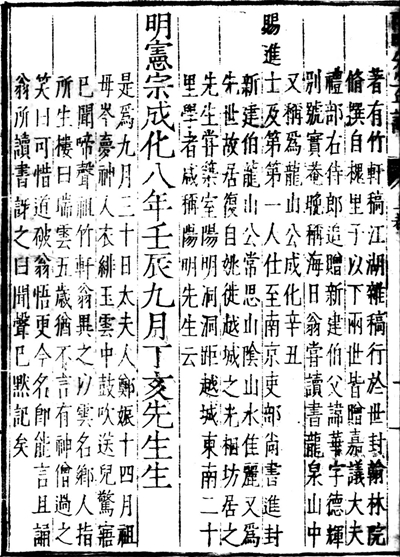 著有竹軒稿江湖雜稿行於世封翰林院
脩撰自槐里子以下兩世皆贈嘉議大夫
禮部右侍郎追贈新建伯父諱華字德輝
別號實菴晚稱海日翁嘗讀書龍泉山中
又稱為龍山公成化辛丑
賜進士及第第一人仕至南京吏部尚書進封
新建伯龍山公常思山陰山水佳麗又為
先世故居復自姚徙越城之光相坊居之
先生嘗築室陽明洞洞距越城東南二十
里學者咸稱陽明先生云
明憲宗成化八年壬辰九月丁亥先生生
是為九月三十日太夫人鄭娠十四月祖
母岑夢神人衣緋玉雲中鼓吹送兒驚寤
已聞啼聲祖竹軒翁異之以雲名鄉人指
所生樓曰瑞雲五歲猶不言有神僧過之
笑曰可惜道破翁悟更今名即能言且誦
翁所讀書訝之曰聞聲已默記矣